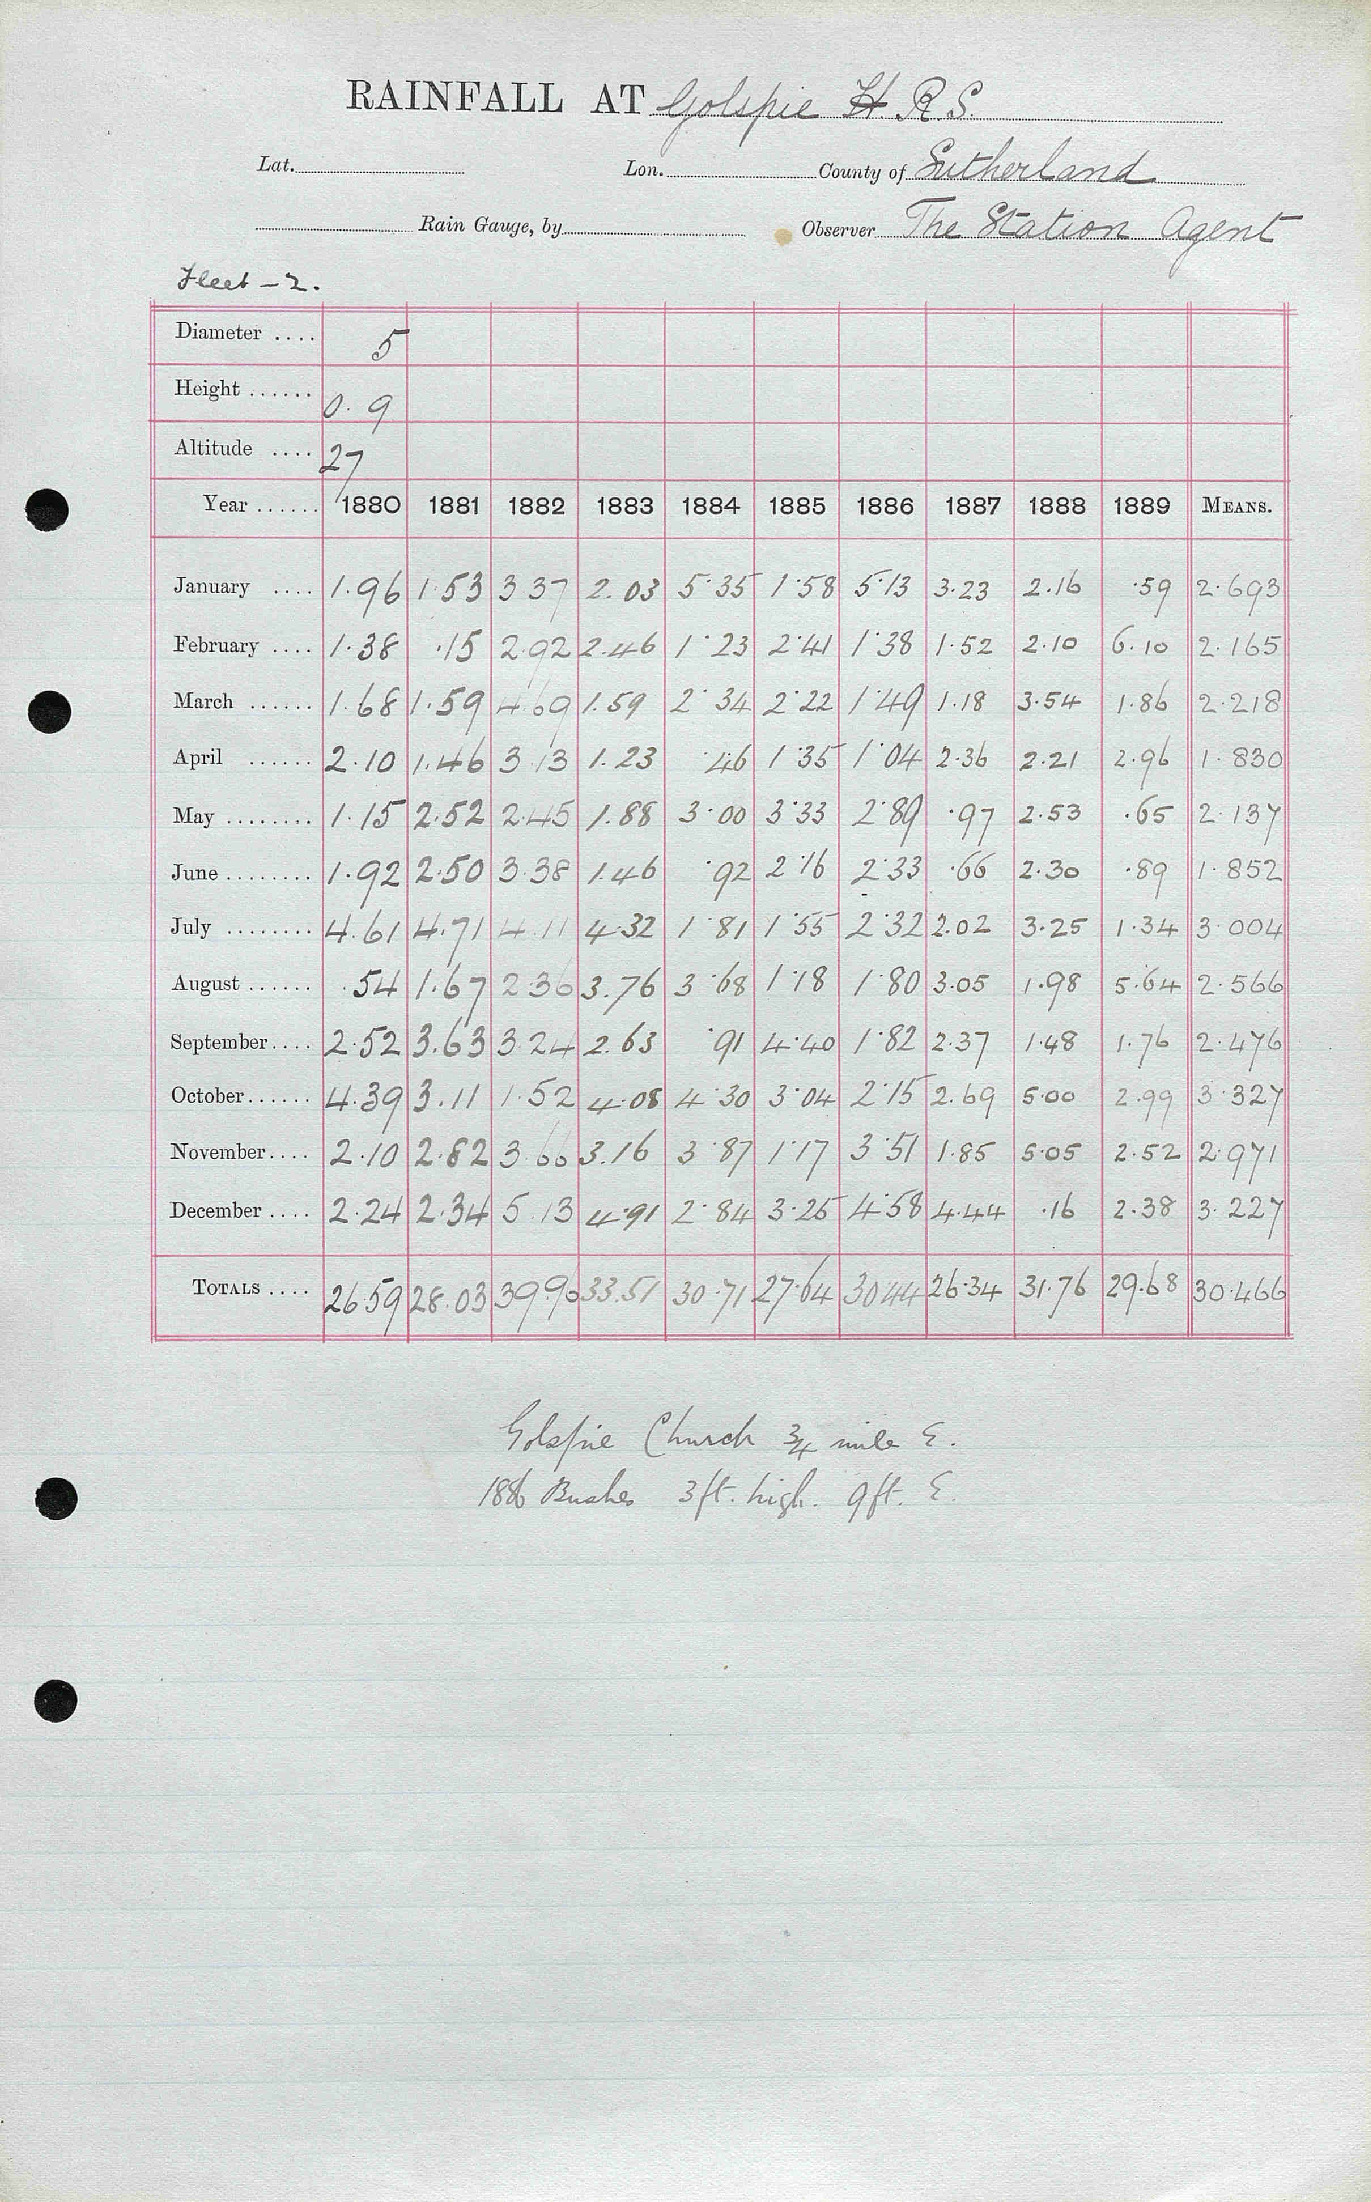 RAINFALL AT Golspie H. R. S.
Lat. Lon. County of Sutherland
Rain Gauge, by Observer The Station Agent
Fleet - 2.
Diameter .... 5
Height ...... 0. 9
Altitude .... 27
Year ...... 1880 1881 1882 1883 1884 1885 1886 1887 1888 1889 MEANS.
January .... 1.96 1.53 3.37 2.03 5.35 1.58 5.13 3.23 2.16 .59 2.693
February .... 1.38 .15 2.92 2.46 1.23 2.41 1.38 1.52 2.10 6.10 2.165
March ...... 1.68 1.59 4.69 1.59 2.34 2.22 1.49 1.18 3.54 1.86 2.218
April ...... 2.10 1.46 3.13 1.23 .46 1.35 1.04 2.36 2.21 2.96 1.830
May ........ 1.15 2.52 2.45 1.88 3.00 3.33 2.89 .97 2.53 .65 2.137
June ........ 1.92 2.50 3.38 1.46 .92 2.16 2.33 .66 2.30 .89 1.852
July ........ 4.61 4.71 4.11 4.32 1.81 1.55 2.32 2.02 3.25 1.34 3.004
August ...... .54 1.67 2.36 3.76 3.68 1.18 1.80 3.05 1.98 5.64 2.566
September .... 2.52 3.63 3.24 2.63 .91 4.40 1.82 2.37 1.48 1.76 2.476
October ...... 4.39 3.11 1.52 4.08 4.30 3.04 2.15 2.69 5.00 2.99 3.327
November .... 2.10 2.82 3.66 3.16 3.87 1.17 3.51 1.85 5.05 2.52 2.971
December .... 2.24 2.34 5.13 4.91 2.84 3.25 4.58 4.44 .16 2.38 3.227
TOTALS .... 26.59 28.03 39.96 33.51 30.71 27.64 30.44 26.34 31.76 29.68 30.466
Golspie Church 3/4 mile E.
1886 Bushes 3ft. high. 9ft. E.